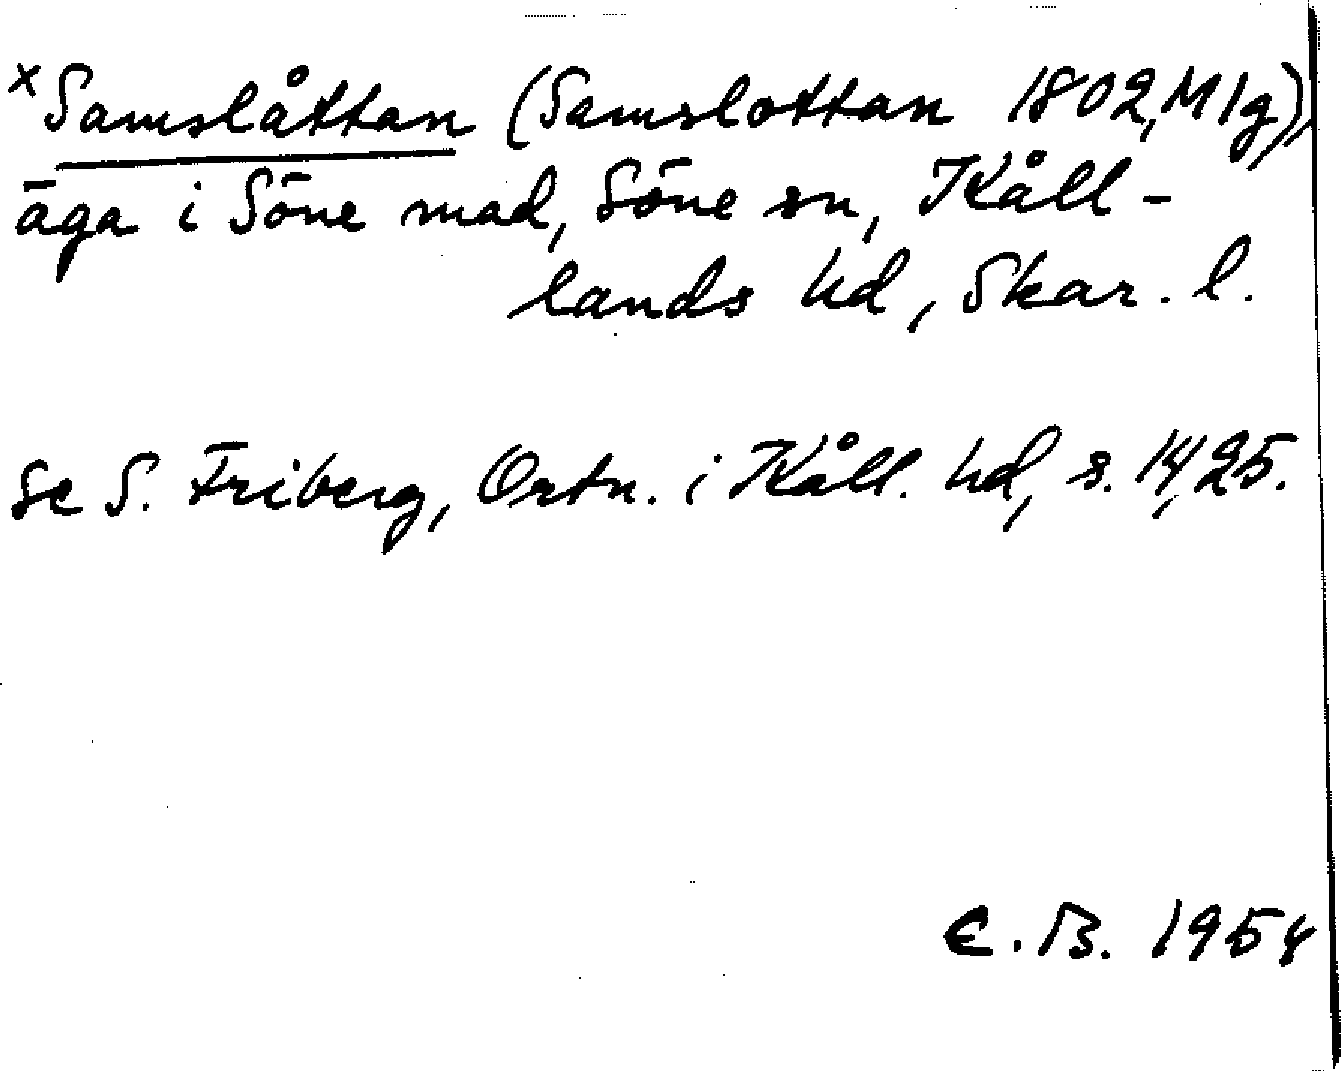 ×Samslåttan (Samslottan 1802, Mlg),
äga i Söne mad, Söne sn, Kåll-
lands hd, Skar. l.
Se S. Friberg, Ortn. i Kåll. hd, s. 14, 25.
E. B. 1954